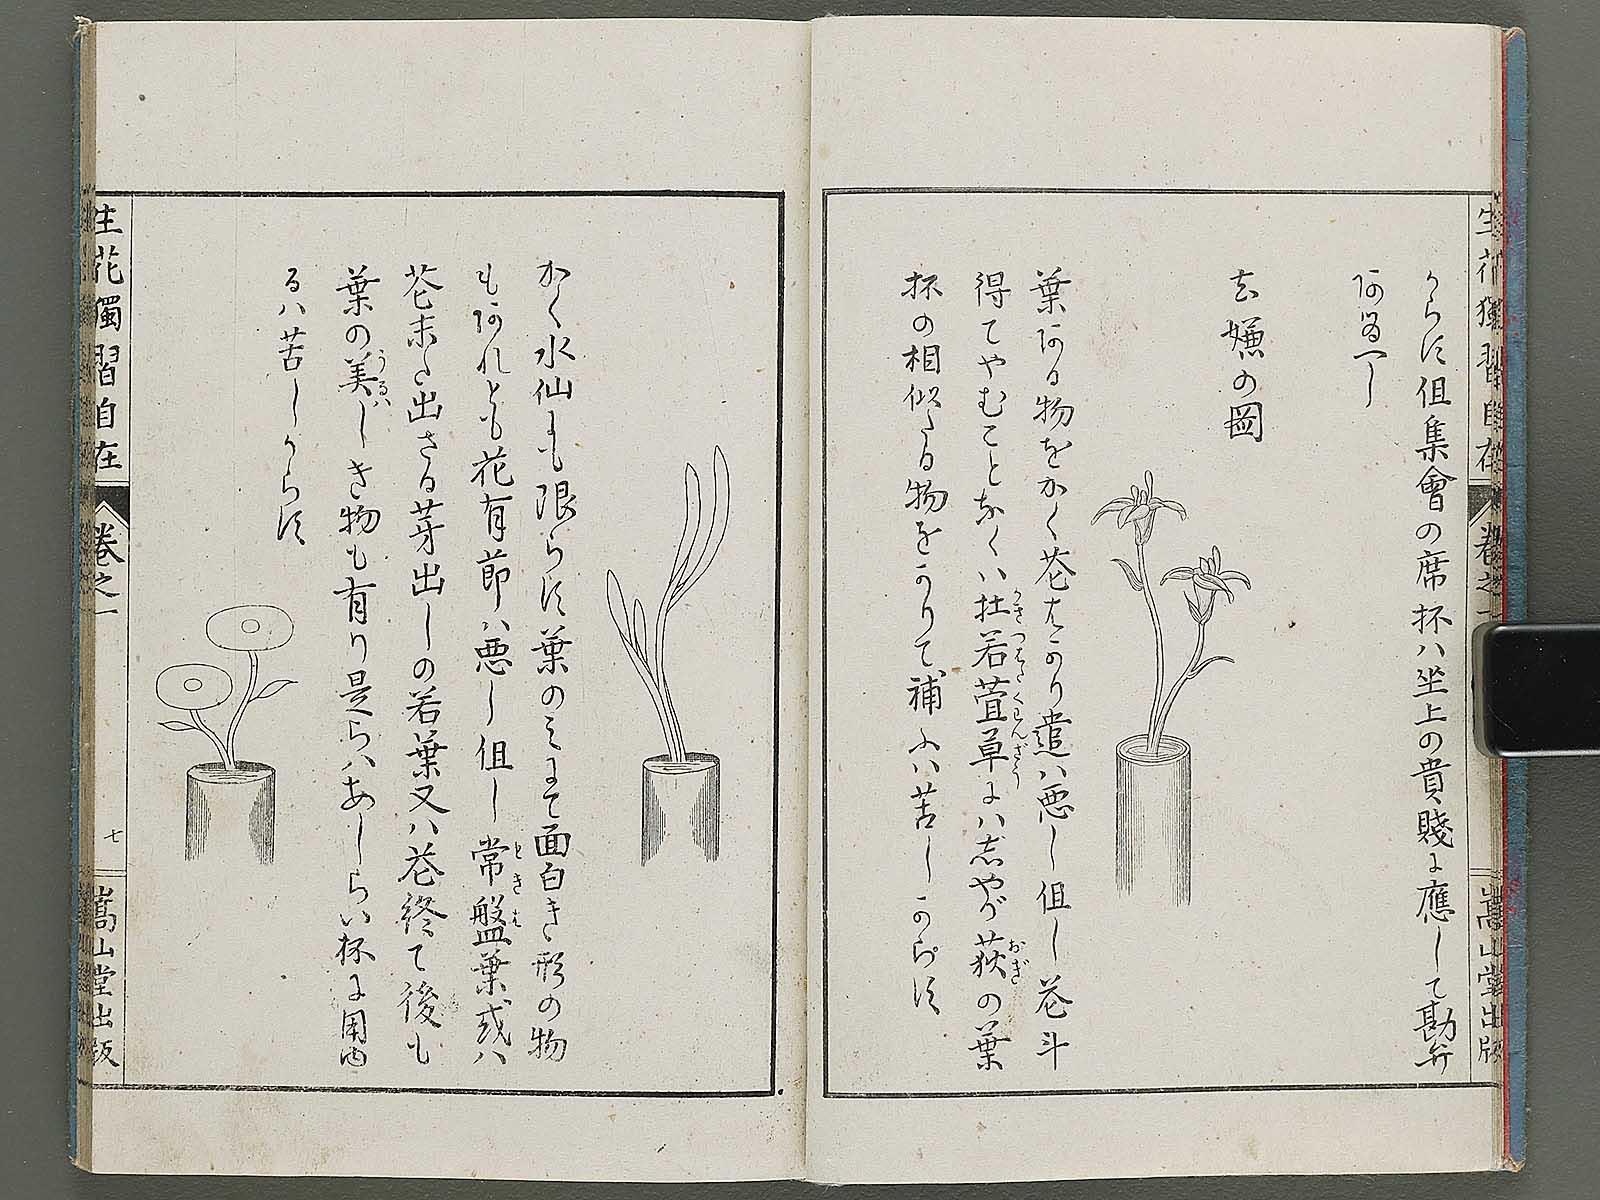 からす但集會の席抔ハ坐上の貴賤に應して勘弁
あるへし
去嫌の圖
葉ある物をかく花はかり遣ハ悪し但し花斗
得てやむことなくハ杜若萱草にハ志やが荻の葉
かきつはた
くわんざう
おぎ
抔の相似たる物をかりて補ふハ苦しからす
かく水仙にも限らす葉のミにて面白き形の物
もあれとも花有節ハ悪し但し常盤葉或ハ
ときは
花未た出さる芽出しの若葉又ハ花終て後も
葉の美しき物も有り是らハあしらい抔に用ゆ
うるハ
るハ苦しからす
生花獨習自在
卷之一
七
嵩山堂出版